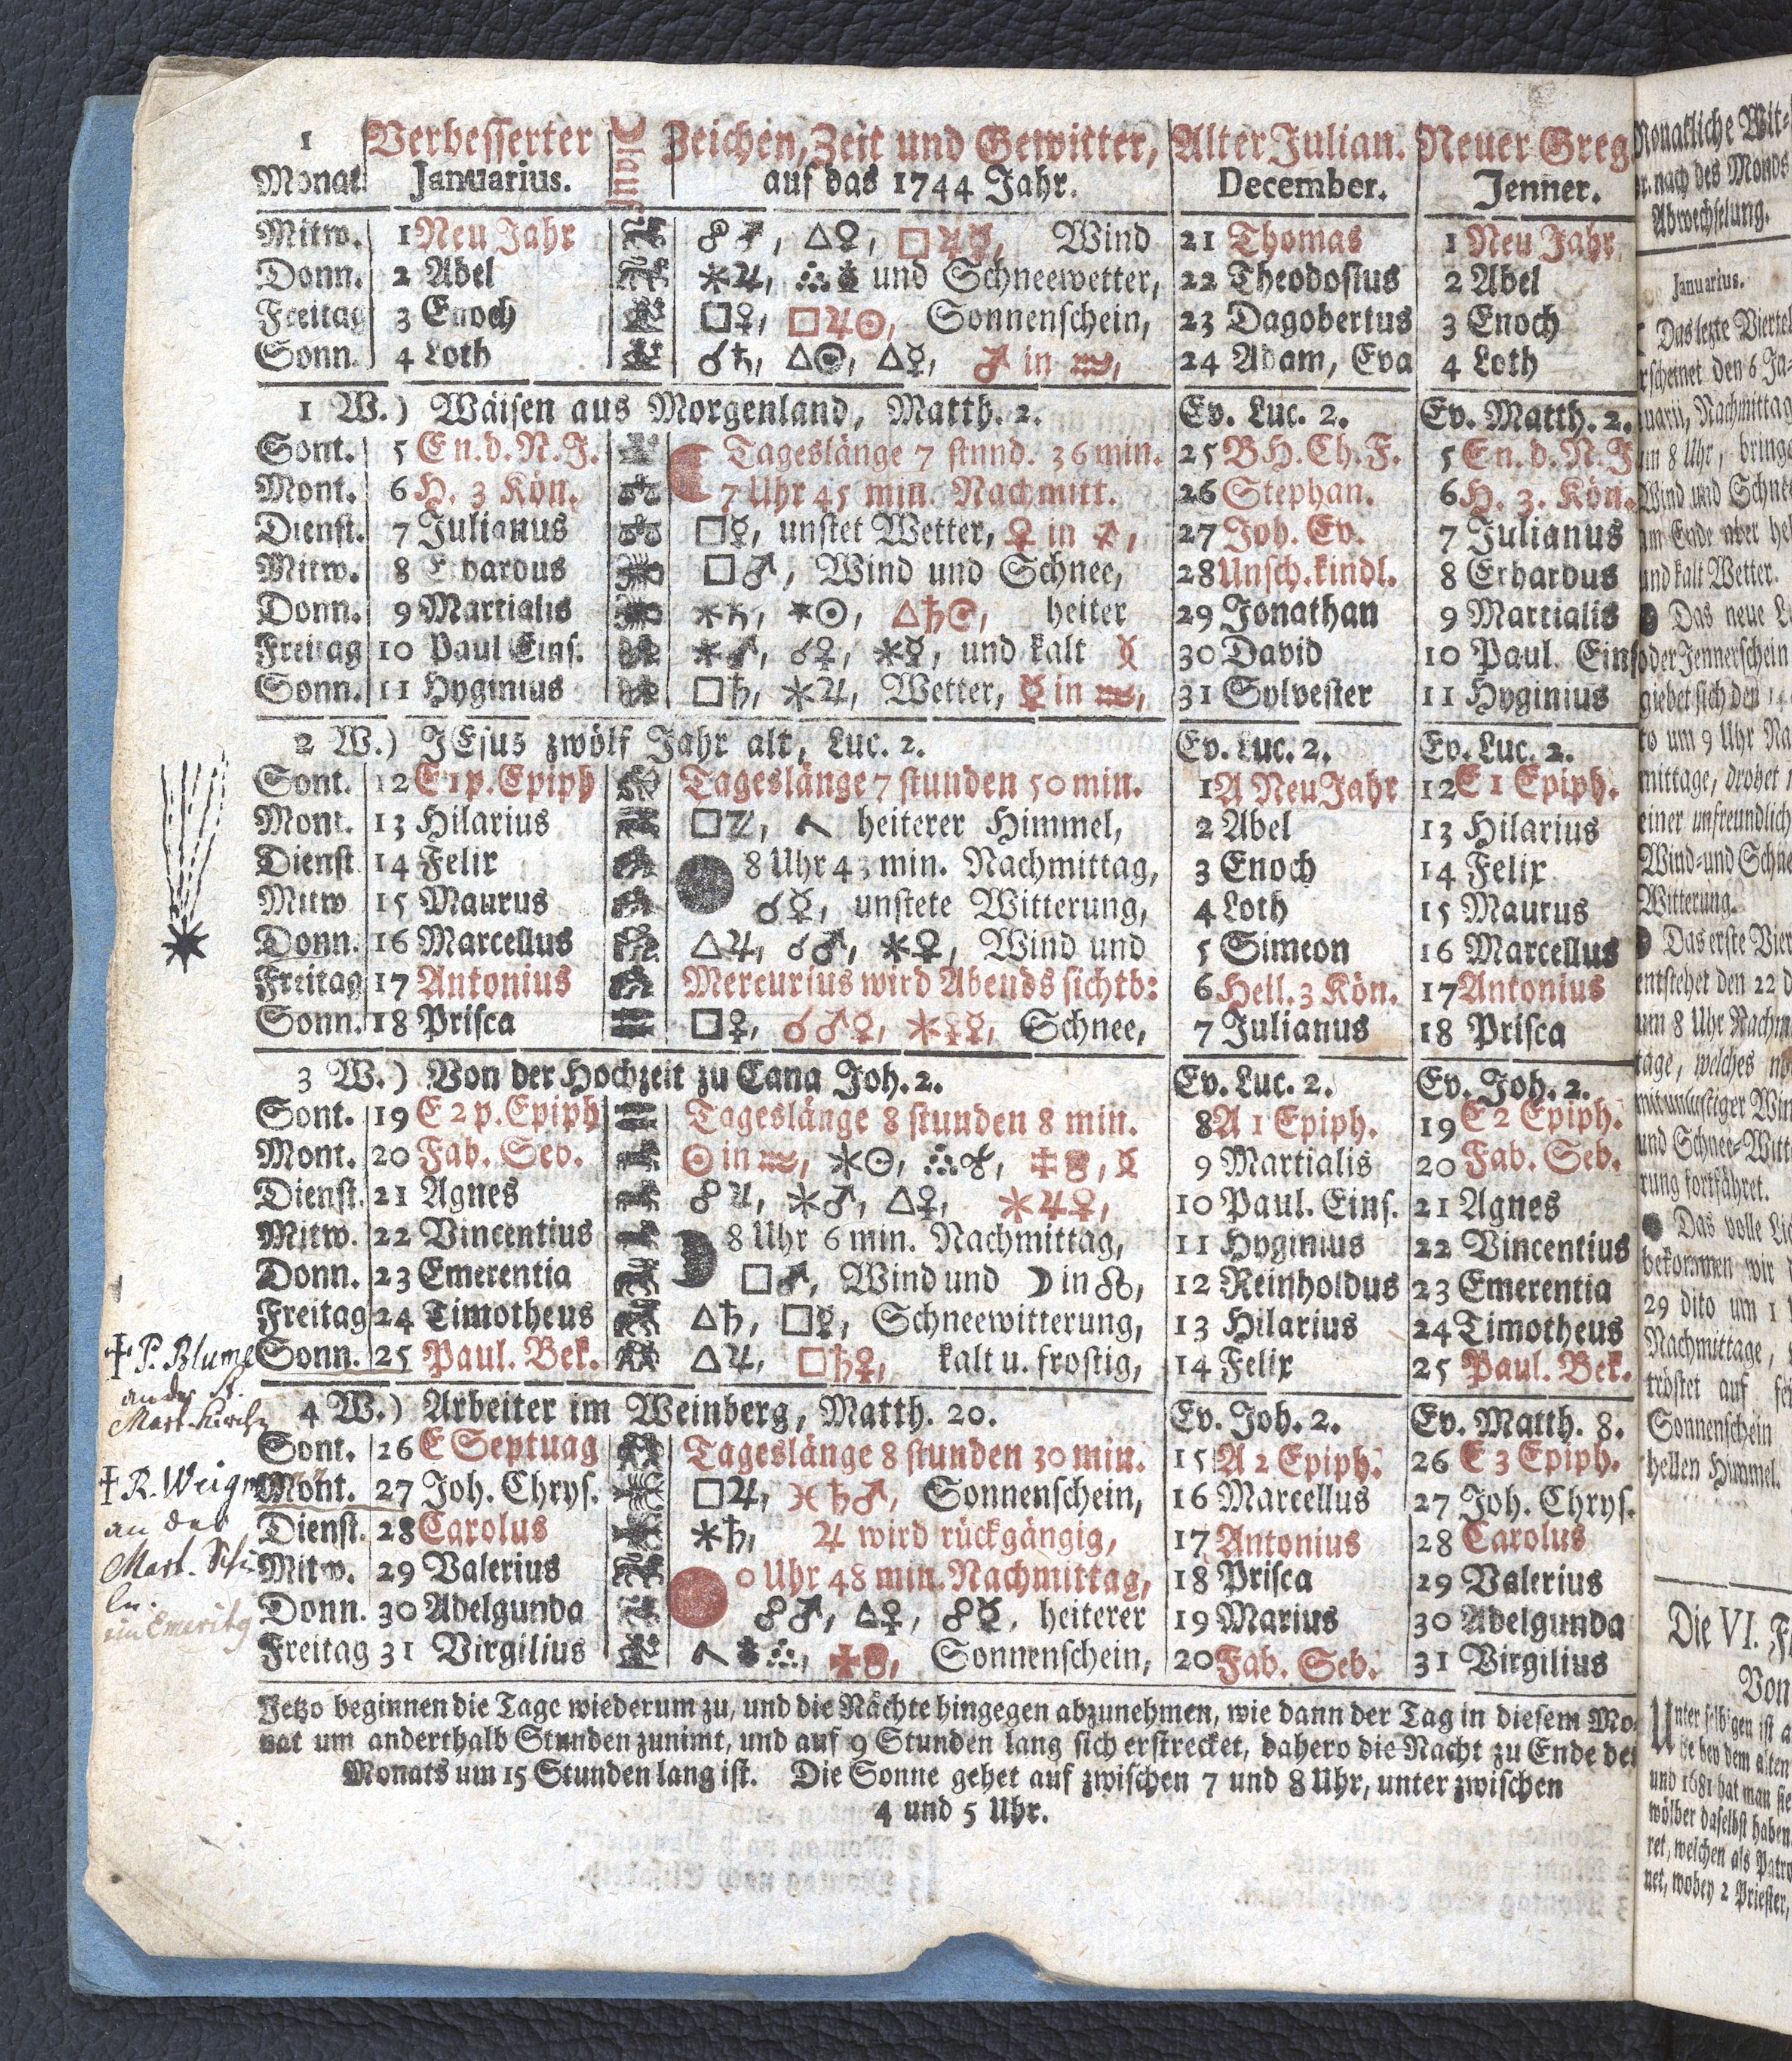 1 Verbesserter ☾ lauf Zeichen, Zeit und Gewitter, Alter Julian. Neuer Greg
Monat. Januarius. auf das 1744 Jahr. December. Jenner.
Mitw. 1 Neu Jahr ☍♂, △♀, □♃☿, Wind 21 Thomas 1 Neu Jahr
Donn. 2 Abel ⚹♃, und Schneewetter, 22 Theodosius 2 Abel
Freitag 3 Enoch □♀, □♃☉, Sonnenschein, 23 Dagobertus 3 Enoch
Sonn. 4 Loth ☌♄, △☉, △☿, ♂ in ♒, 24 Adam, Eva 4 Loth
1 W.) Wäisen aus Morgenland, Matth. 2. Ev. Luc. 2. Ev. Matth. 2.
Sont. 5 E n. d. N. J. Tageslänge 7 stund. 36 min. 25 B H. Ch. F. 5 E n. d. N. J
Mont. 6 H. 3 Kön. 7 Uhr 45 min. Nachmitt. 26 Stephan. 6 H. 3. Kön.
Dienst. 7 Julianus □☿, unstet Wetter, ♀ in ♐, 27 Joh. Ev. 7 Julianus
Mitw. 8 Erhardus □♂, Wind und Schnee, 28 Unsch. kindl. 8 Erhardus
Donn. 9 Martialis ⚹♄, ⚹☉, △♄☉, heiter 29 Jonathan 9 Martialis
Freitag 10 Paul Eins. ⚹♂, ☌♀, ⚹☿, und kalt 30 David 10 Paul. Eins
Sonn. 11 Hyginius □♄, ⚹♃, Wetter, ☿ in ♒, 31 Sylvester 11 Hyginius
2 W.) JEsus zwölf Jahr alt, Luc. 2. Ev. Luc. 2. Ev. Luc. 2.
Sont. 12 E 1 p. Epiph Tageslänge 7 stunden 50 min. 1 A Neu Jahr 12 E 1 Epiph.
Mont. 13 Hilarius □♃, heiterer Himmel, 2 Abel 13 Hilarius
Dienst 14 Felix 8 Uhr 43 min. Nachmittag, 3 Enoch 14 Felix
Mitw 15 Maurus ☌☿, unstete Witterung, 4 Loth 15 Maurus
Donn. 16 Marcellus △♃, ☌♂, ⚹♀, Wind und 5 Simeon 16 Marcellus
Freitag 17 Antonius Mercurius wird Abends sichtb: 6 Heil. 3 Kön. 17 Antonius
Sonn. 18 Prisca □♀, ☌♂☿, ⚹♀☿, Schnee, 7 Julianus 18 Prisca
3 W.) Von der Hochzeit zu Cana Joh. 2. Ev. Luc. 2. Ev. Joh. 2.
Sont. 19 E 2 p. Epiph Tageslänge 8 stunden 8 min. 8 A 1 Epiph. 19 E 2 Epiph.
Mont. 20 Fab. Seb. ☉ in ♒, ⚹☉, 9 Martialis 20 Fab. Seb.
Dienst. 21 Agnes ☍♃, ⚹♂, △♀, ⚹♃♀, 10 Paul. Eins. 21 Agnes
Mitw. 22 Vincentius 8 Uhr 6 min. Nachmittag, 11 Hyginius 22 Vincentius
Donn. 23 Emerentia □♂, Wind und ☽ in ☊, 12 Reinholdus 23 Emerentia
Freitag 24 Timotheus △♄, □☿, Schneewitterung, 13 Hilarius 24 Timotheus
Sonn. 25 Paul. Bek. △♃, □♄♀, kalt u. frostig, 14 Felix 25 Paul. Bek.
4 W.) Arbeiter im Weinberg, Matth. 20. Ev. Joh. 2. Ev. Matth. 8.
Sont. 26 E Septuag Tageslänge 8 stunden 30 min. 15 A 2 Epiph. 26 E 3 Epiph.
Mont. 27 Joh. Chrys. □♃, ♄♂, Sonnenschein, 16 Marcellus 27 Joh. Chrys.
Dienst. 28 Carolus ⚹♄, ♃ wird rückgängig, 17 Antonius 28 Carolus
Mitw. 29 Valerius 0 Uhr 48 min. Nachmittag, 18 Prisca 29 Valerius
Donn. 30 Adelgunda ☍♂, △♀, ☍☿, heiterer 19 Marius 30 Adelgunda
Freitag 31 Virgilius Sonnenschein, 20 Fab. Seb. 31 Virgilius
Jetzo beginnen die Tage wiederum zu, und die Nächte hingegen abzunehmen, wie dann der Tag in diesem Mo-
nat um anderthalb Stunden zunimt, und auf 9 Stunden lang sich erstrecket, dahero die Nacht zu Ende des
Monats um 15 Stunden lang ist. Die Sonne gehet auf zwischen 7 und 8 Uhr, unter zwischen
4 und 5 Uhr.
† P. Blume
an der St.
Mart. Kirch
† R. Weig
an der
Mart. Schu
ln.
Monatliche Wit-
nach des Monds
Abwechselung.
Januarius.
Das lezte Viertel
erscheinet den 6 Ja-
nuarii, Nachmittag
um 8 Uhr, bringe
Wind und Schne
am Ende aber he
und kalt Wetter.
Das neue L
oder Jennerschein
giebet sich den 14
um 9 Uhr Na
mittage, drohet
einer unfreundlich
Wind- und Schne
Witterung.
Das erste Vier
entstehet den 22 d
um 8 Uhr Nachm
tage, welches
mit unlustiger Win
und Schnee-Witt
rung fortfähret.
Das volle Li
bekommen wir
29 dito um 1
Nachmittage,
tröstet auf sei
Sonnenschein
hellen Himmel.
Die VI. F
Von
Unter selbigen ist a
he bey dem alten
und 1681 hat man sie
wölber daselbst haben
ret, welchen als Patro
net, wobey 2 Priester,